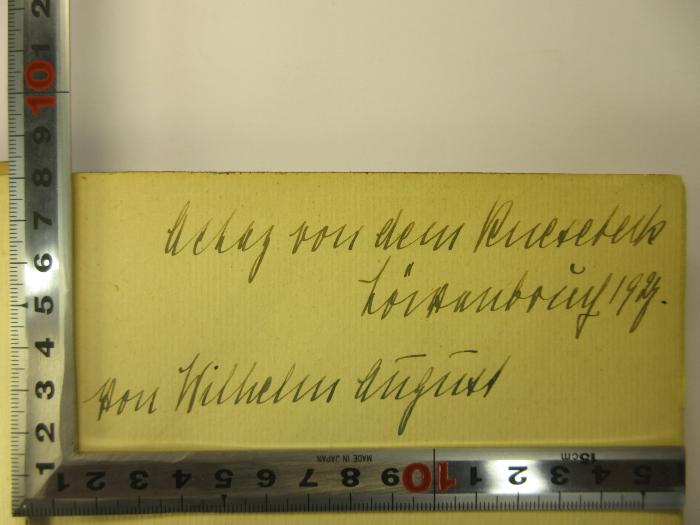 Achaz von dem Knesebeck
Löwenbruch 1927.
von Wilhelm August
MADE IN JAPAN
15cm
1 2 3 4 5 6 7 8 9 10 1 2
1 2 3 4 5 6 7 8 9 10 1 2 3 4 5